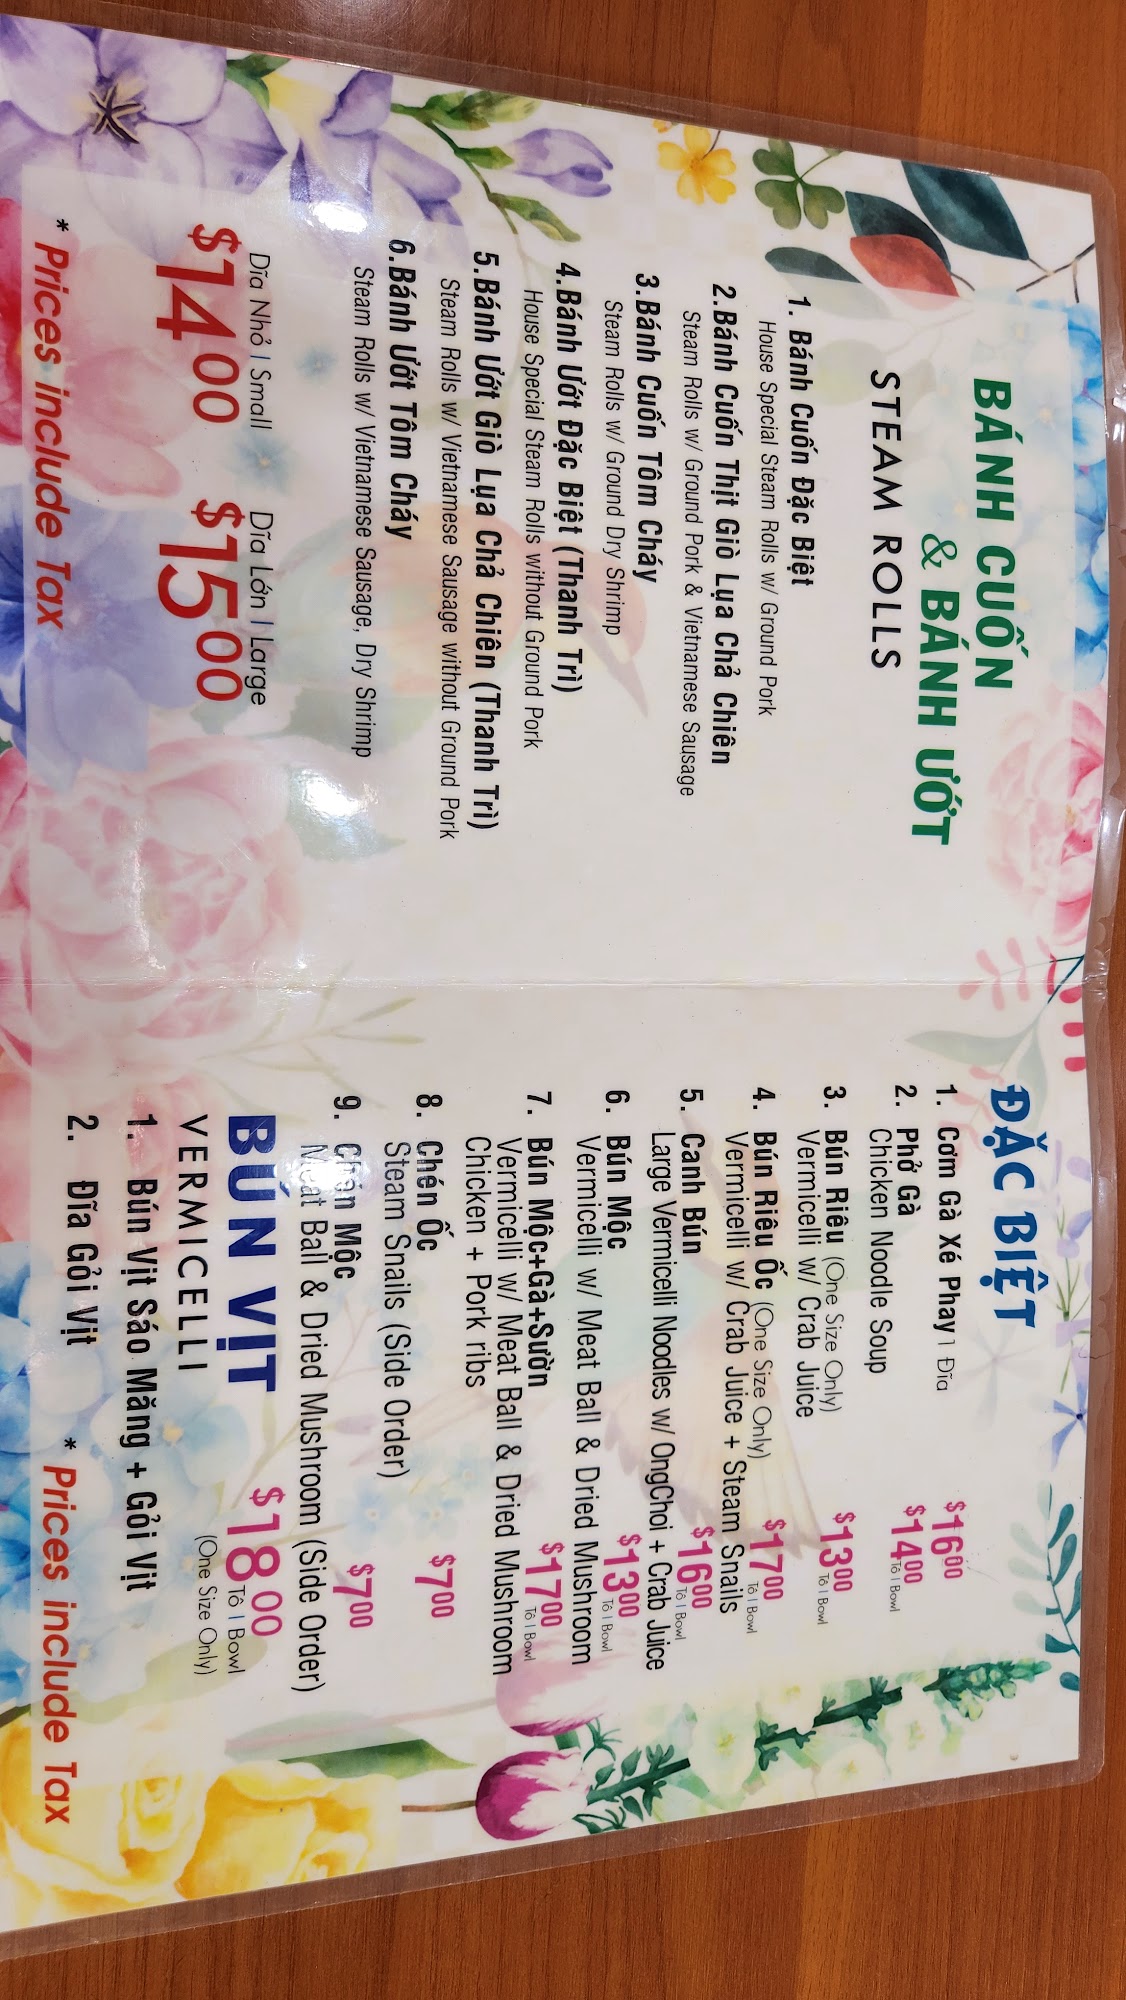 BÁNH CUỐN
& BÁNH ƯỚT
STEAM ROLLS
1. Bánh Cuốn Đặc Biệt
House Special Steam Rolls w/ Ground Pork
2.Bánh Cuốn Thịt Giò Lụa Chả Chiên
Steam Rolls w/ Ground Pork & Vietnamese Sausage
3.Bánh Cuốn Tôm Cháy
Steam Rolls w/ Ground Dry Shrimp
4.Bánh Ướt Đặc Biệt (Thanh Trì)
House Special Steam Rolls without Ground Pork
5.Bánh Ướt Giò Lụa Chả Chiên (Thanh Trì)
Steam Rolls w/ Vietnamese Sausage without Ground Pork
6.Bánh Ướt Tôm Cháy
Steam Rolls w/ Vietnamese Sausage, Dry Shrimp
Dĩa Nhỏ | Small
$14.00
Dĩa Lớn | Large
$15.00
* Prices include Tax
ĐẶC BIỆT
1. Cơm Gà Xé Phay 1 Dĩa $16.00
2. Phở Gà $14.00 Tô | Bowl
Chicken Noodle Soup
3. Bún Riêu (One Size Only) $13.00 Tô | Bowl
Vermicelli w/ Crab Juice
4. Bún Riêu Ốc (One Size Only) $17.00 Tô | Bowl
Vermicelli w/ Crab Juice + Steam Snails
5. Canh Bún $16.00 Tô | Bowl
Large Vermicelli Noodles w/ OngChoi + Crab Juice
6. Bún Mộc $13.00 Tô | Bowl
Vermicelli w/ Meat Ball & Dried Mushroom
7. Bún Mộc+Gà+Sườn $17.00 Tô | Bowl
Vermicelli w/ Meat Ball & Dried Mushroom
Chicken + Pork ribs
8. Chén Ốc $7.00
Steam Snails (Side Order)
9. Chén Mộc $7.00
Meat Ball & Dried Mushroom (Side Order)
BÚN VỊT $18.00 Tô | Bowl
VERMICELLI (One Size Only)
1. Bún Vịt Sáo Măng + Gỏi Vịt
2. Đĩa Gỏi Vịt
* Prices include Tax